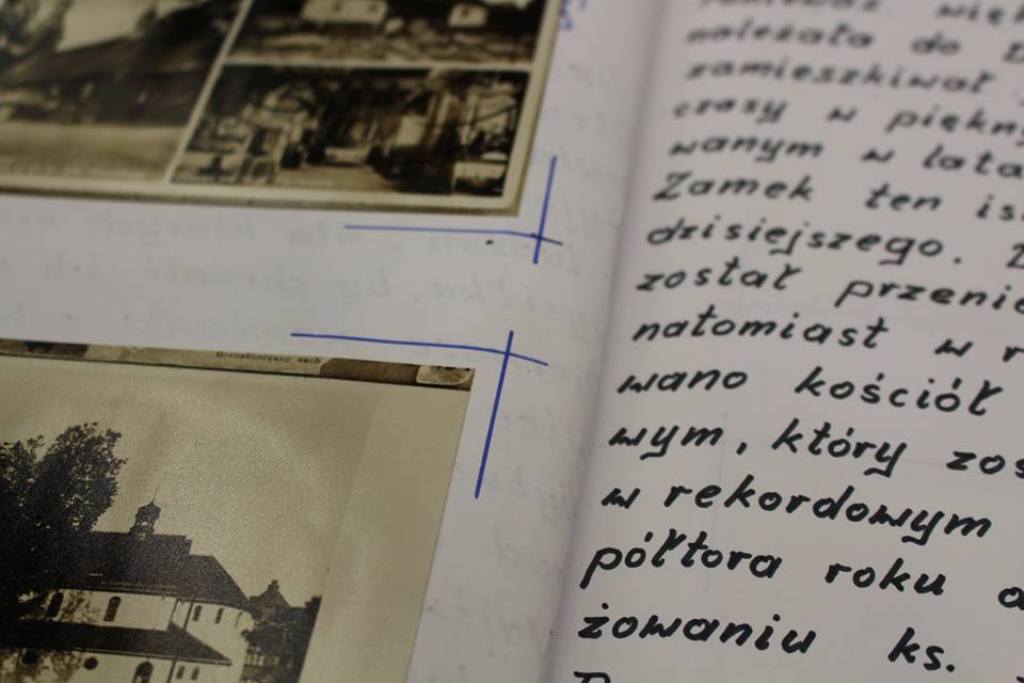 należała do
zamieszkiwał
czasy w piękny
wanym w lata
Zamek ten is
dzisiejszego.
został przenie
natomiast w r
wano kościół
wym, który zos
w rekordowym
półtora roku a
żowaniu ks.